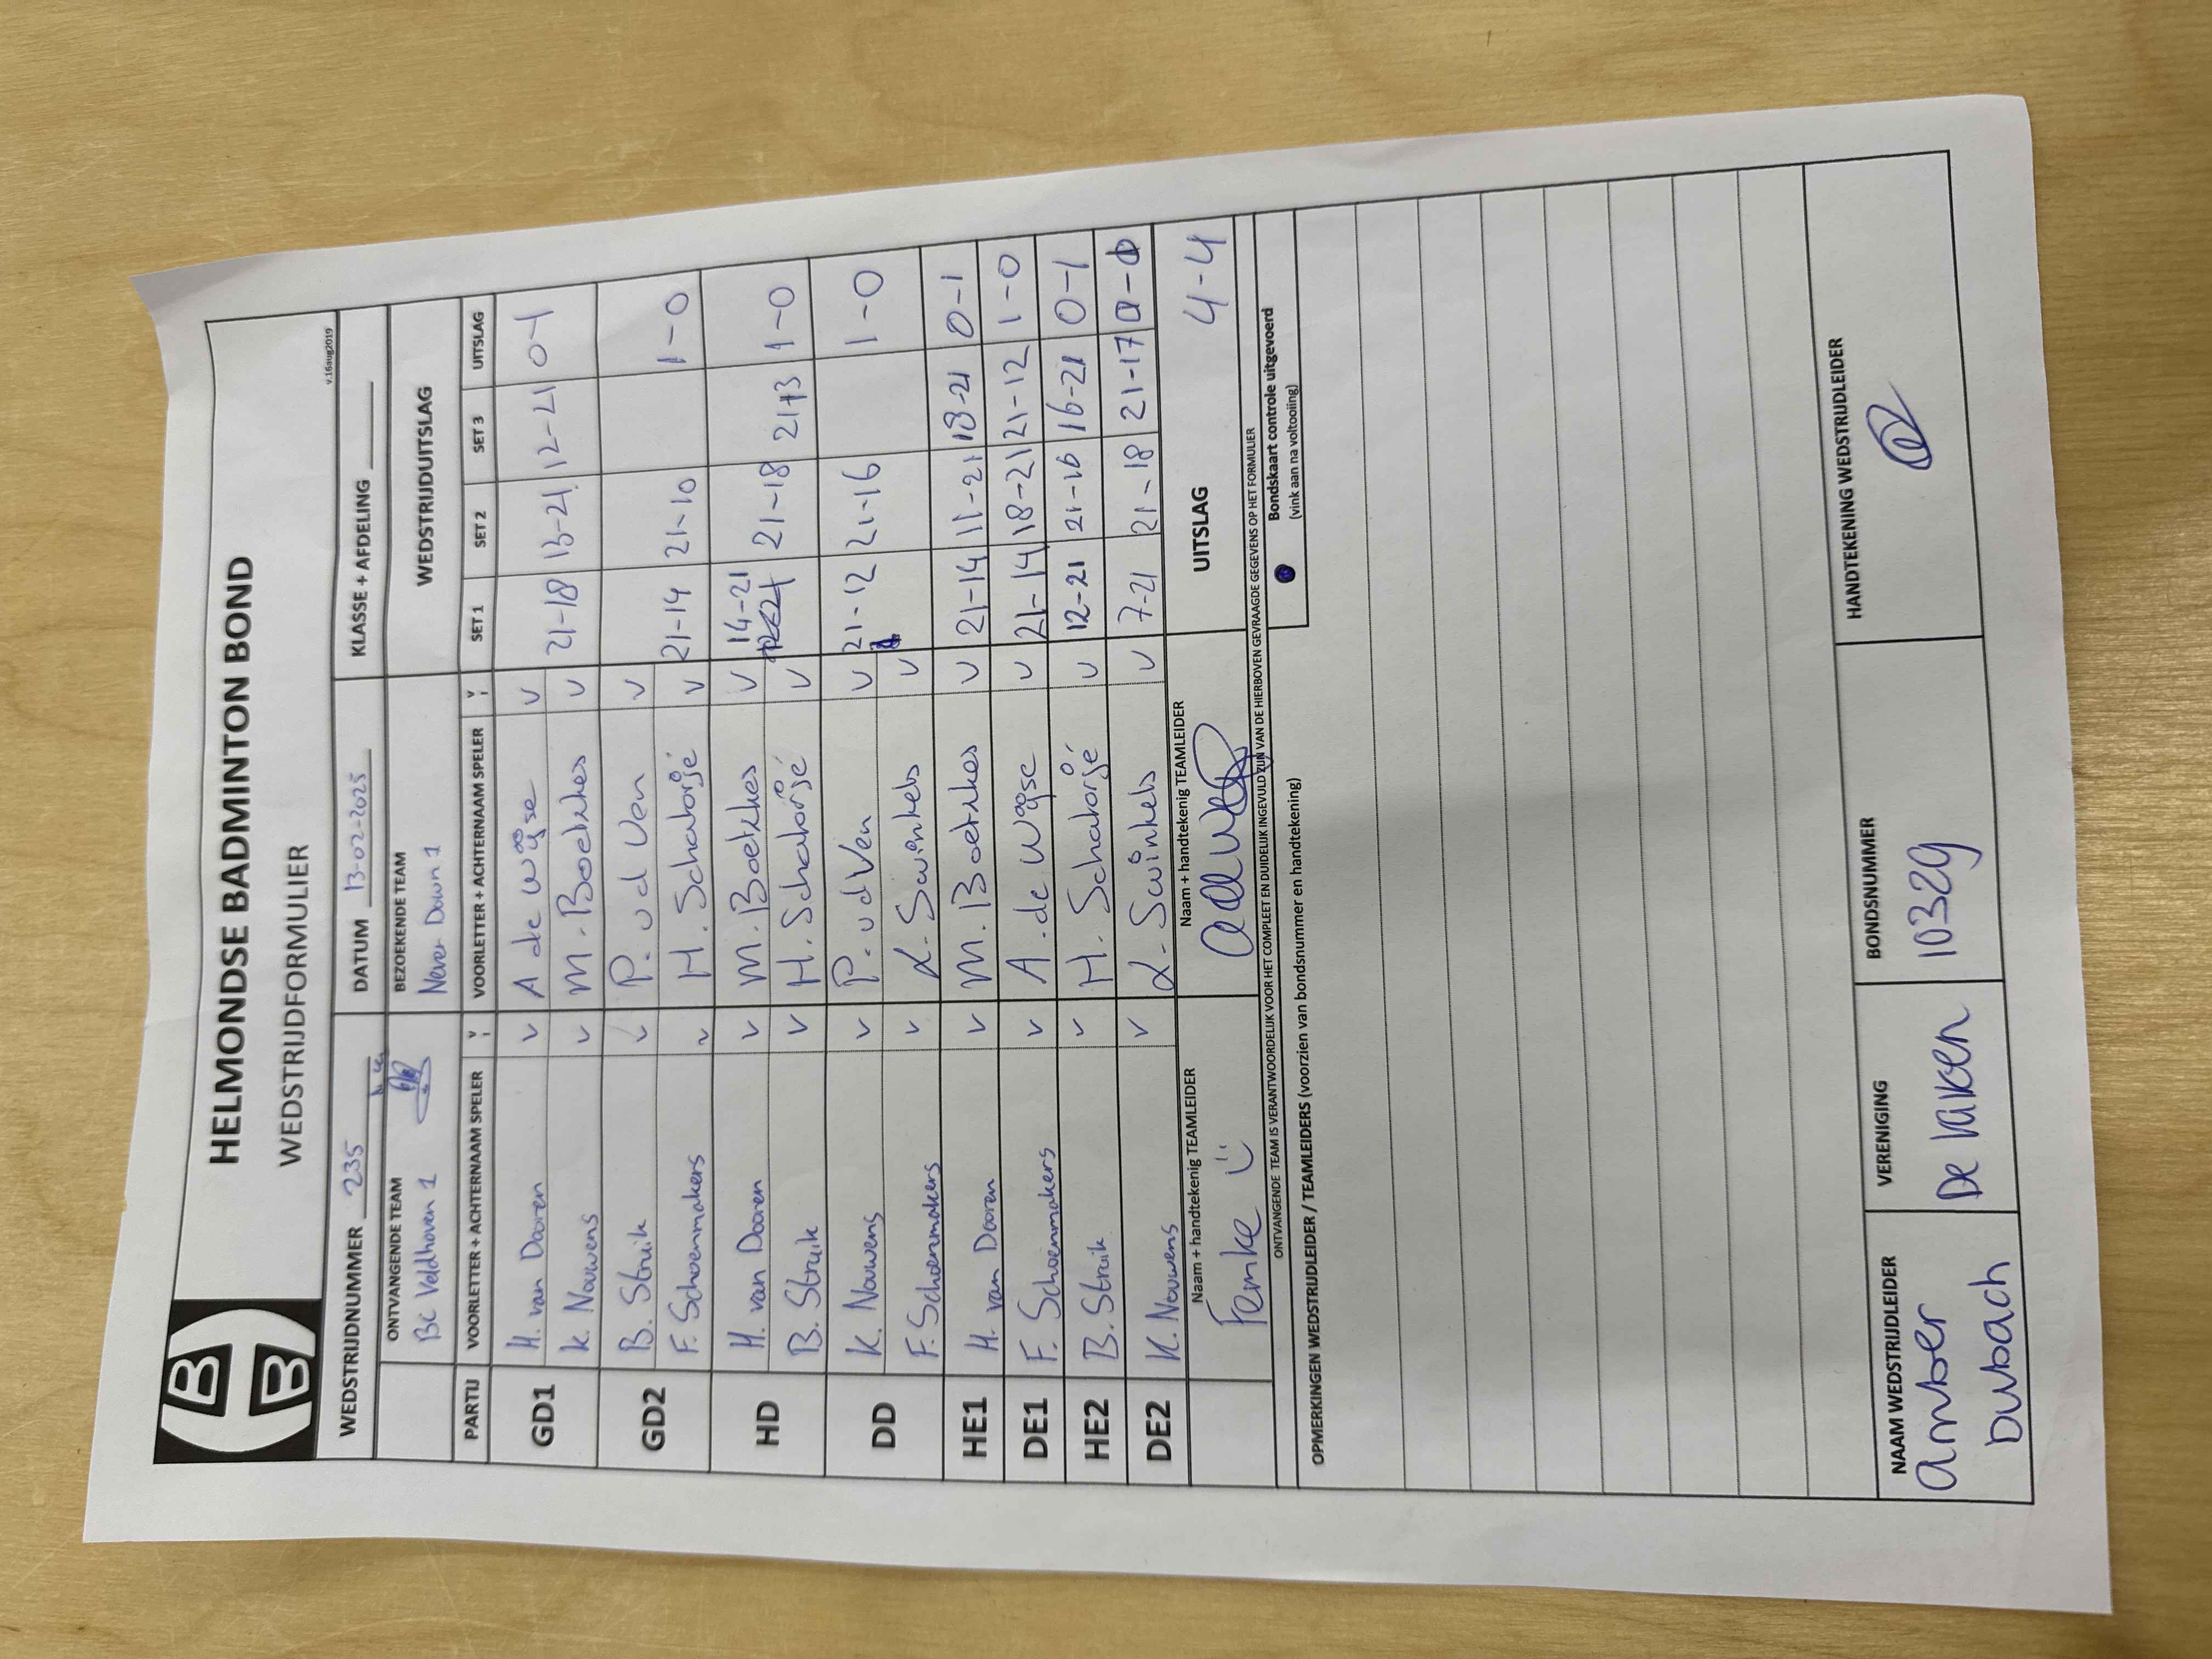 HBB
HELMONDSE BADMINTON BOND
WEDSTRIJDFORMULIER
v.16aug2019
WEDSTRIJDNUMMER 235 DATUM 13-02-2025 KLASSE + AFDELING
ONTVANGENDE TEAM BEZOEKENDE TEAM WEDSTRIJDUITSLAG
BC Veldhoven 1 Never Down 1
PARTIJ VOORLETTER + ACHTERNAAM SPELER V VOORLETTER + ACHTERNAAM SPELER V SET 1 SET 2 SET 3 UITSLAG
GD1 H. van Dooren v A de Wijse v
K. Nouwens v M. Boetzkes v 21-18 13-21 12-21 0-1
GD2 B. Struik v P. vd Ven v
F. Schoenmakers v H. Schavorjé v 21-14 21-10 1-0
HD H. van Dooren v M. Boetzkes v 14-21
B. Struik v H. Schavorjé v 21-18 21-13 1-0
DD K. Nouwens v P. vd Ven v 21-12 21-16 1-0
F. Schoenmakers v L. Swinkels v
HE1 H. van Dooren v M. Boetzkes v 21-14 11-21 18-21 0-1
DE1 F. Schoenmakers v A. de Wijse v 21-14 18-21 21-12 1-0
HE2 B. Struik v H. Schavorjé v 12-21 21-16 16-21 0-1
DE2 K. Nouwens v L. Swinkels v 7-21 21-18 21-17
Naam + handtekenig TEAMLEIDER Naam + handtekenig TEAMLEIDER UITSLAG 4-4
Femke :)
ONTVANGENDE TEAM IS VERANTWOORDELIJK VOOR HET COMPLEET EN DUIDELIJK INGEVULD ZIJN VAN DE HIERBOVEN GEVRAAGDE GEGEVENS OP HET FORMULIER
Bondskaart controle uitgevoerd
(vink aan na voltooiing)
OPMERKINGEN WEDSTRIJDLEIDER / TEAMLEIDERS (voorzien van bondsnummer en handtekening)
NAAM WEDSTRIJDLEIDER VERENIGING BONDSNUMMER HANDTEKENING WEDSTRIJDLEIDER
Amber De Raken 10329
Dubach